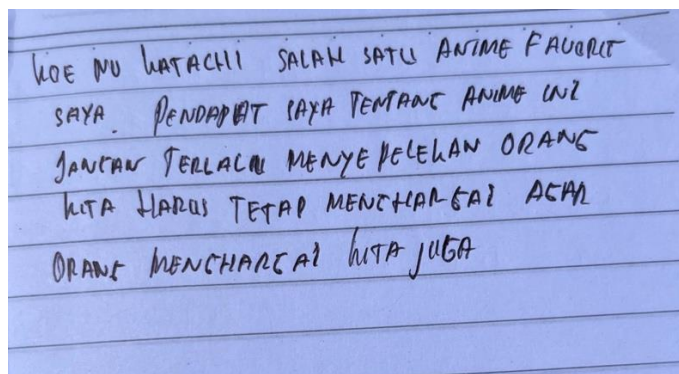 KOE NO KATACHI SALAH SATU ANIME FAVORIT
SAYA. PENDAPAT SAYA TENTANG ANIME INI
JANGAN TERLALU MENYEPELEKAN ORANG
KITA HARUS TETAP MENGHARGAI AGAR
ORANG MENGHARGAI KITA JUGA